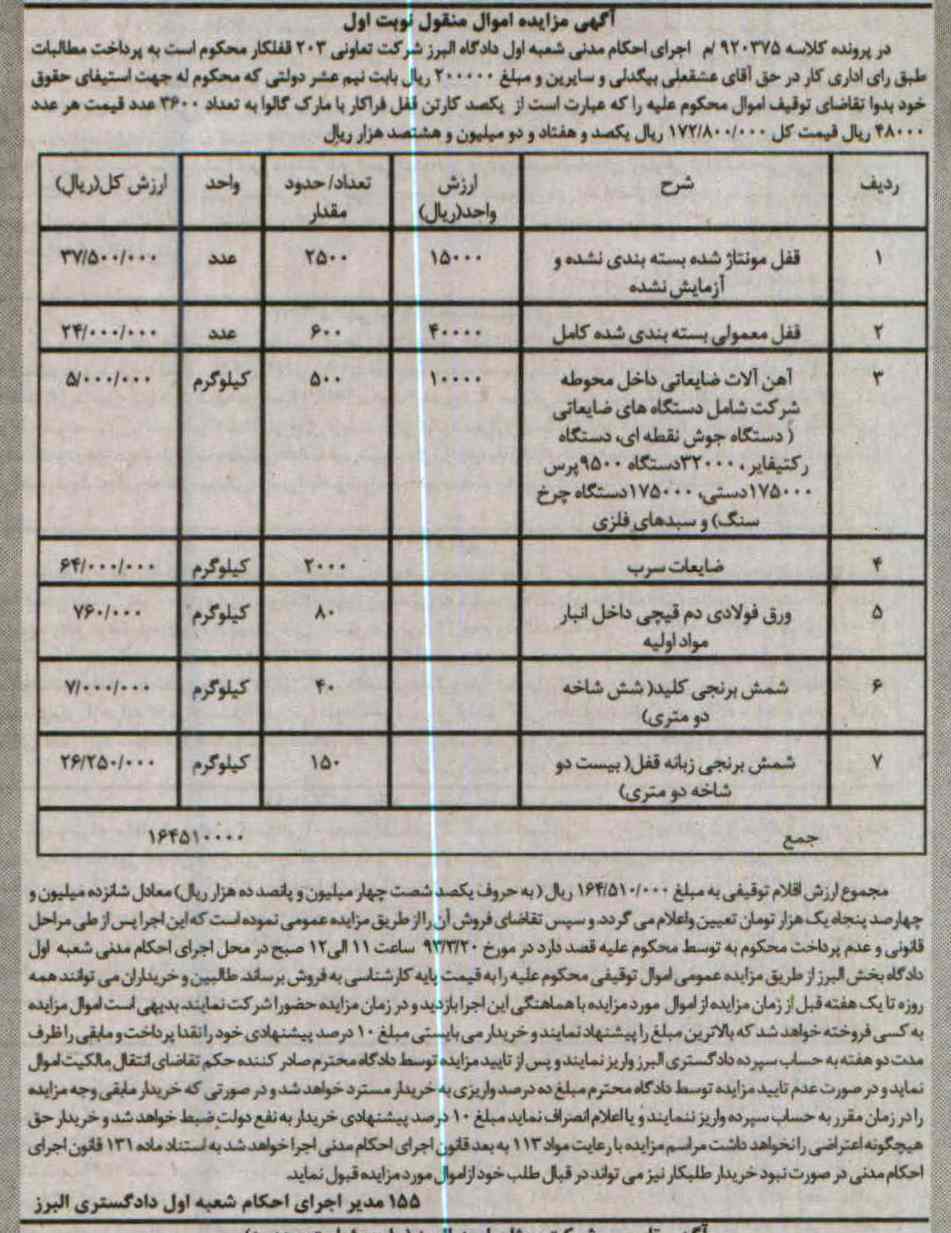 آگهی مزایده اموال منقول نوبت اول
در پرونده کلاسه ۹۲۰۳۷۵ /م اجرای احکام مدنی شعبه اول دادگاه البرز شرکت تعاونی ۲۰۳ قفلکار محکوم است به پرداخت مطالبات
طبق رای اداری کار در حق آقای عشقعلی بیگدلی و سایرین و مبلغ ۲۰۰۰۰۰ ریال بابت نیم عشر دولتی که محکوم له جهت استیفای حقوق
خود بدوا تقاضای توقیف اموال محکوم علیه را که عبارت است از یکصد کارتن قفل فراکار با مارک گالوا به تعداد ۳۶۰۰ عدد قیمت هر عدد
۴۸۰۰۰ ریال قیمت کل ۱۷۲/۸۰۰/۰۰۰ ریال یکصد و هفتاد و دو میلیون و هشتصد هزار ریال
ردیف شرح ارزش واحد(ریال) تعداد/حدود مقدار واحد ارزش کل(ریال)
۱ قفل مونتاژ شده بسته بندی نشده و ۱۵۰۰۰ ۲۵۰۰ عدد ۳۷/۵۰۰/۰۰۰
آزمایش نشده
۲ قفل معمولی بسته بندی شده کامل ۴۰۰۰۰ ۶۰۰ عدد ۲۴/۰۰۰/۰۰۰
۳ آهن آلات ضایعاتی داخل محوطه ۱۰۰۰۰ ۵۰۰ کیلوگرم ۵/۰۰۰/۰۰۰
شرکت شامل دستگاه های ضایعاتی
( دستگاه جوش نقطه ای، دستگاه
رکتیفایر ، ۳۲۰۰۰دستگاه ۹۵۰۰پرس
۱۷۵۰۰۰دستی، ۱۷۵۰۰۰دستگاه چرخ
سنگ) و سبدهای فلزی
۴ ضایعات سرب ۲۰۰۰ کیلوگرم ۶۴/۰۰۰/۰۰۰
۵ ورق فولادی دم قیچی داخل انبار ۸۰ کیلوگرم ۷۶۰/۰۰۰
مواد اولیه
۶ شمش برنجی کلید( شش شاخه ۴۰ کیلوگرم ۷/۰۰۰/۰۰۰
دو متری)
۷ شمش برنجی زبانه قفل( بیست دو ۱۵۰ کیلوگرم ۲۶/۲۵۰/۰۰۰
شاخه دو متری)
جمع ۱۶۴۵۱۰۰۰۰
مجموع ارزش اقلام توقیفی به مبلغ ۱۶۴/۵۱۰/۰۰۰ ریال ( به حروف یکصد شصت چهار میلیون و پانصد ده هزار ریال) معادل شانزده میلیون و
چهارصد پنجاه یک هزار تومان تعیین واعلام می گردد و سپس تقاضای فروش آن را از طریق مزایده عمومی نموده است که این اجرا پس از طی مراحل
قانونی و عدم پرداخت محکوم به توسط محکوم علیه قصد دارد در مورخ ۹۳/۳/۲۰ ساعت ۱۱ الی۱۲ صبح در محل اجرای احکام مدنی شعبه اول
دادگاه بخش البرز از طریق مزایده عمومی اموال توقیفی محکوم علیه را به قیمت پایه کارشناسی به فروش برساند. طالبین و خریداران می توانند همه
روزه تا یک هفته قبل از زمان مزایده از اموال مورد مزایده با هماهنگی این اجرا بازدید و در زمان مزایده حضورا شرکت نمایند. بدیهی است اموال مزایده
به کسی فروخته خواهد شد که بالاترین مبلغ را پیشنهاد نمایند و خریدار می بایستی مبلغ ۱۰ درصد پیشنهادی خود را نقدا پرداخت و مابقی را ظرف
مدت دو هفته به حساب سپرده دادگستری البرز واریز نمایند و پس از تایید مزایده توسط دادگاه محترم صادر کننده حکم تقاضای انتقال مالکیت اموال
نماید و در صورت عدم تایید مزایده توسط دادگاه محترم مبلغ ده درصد واریزی به خریدار مسترد خواهد شد و در صورتی که خریدار مابقی وجه مزایده
را در زمان مقرر به حساب سپرده واریز ننمایند و یا اعلام انصراف نماید مبلغ ۱۰ درصد پیشنهادی خریدار به نفع دولت ضبط خواهد شد و خریدار حق
هیچگونه اعتراضی را نخواهد داشت مراسم مزایده با رعایت مواد ۱۱۳ به بعد قانون اجرای احکام مدنی اجرا خواهد شد به استناد ماده ۱۳۱ قانون اجرای
احکام مدنی در صورت نبود خریدار طلبکار نیز می تواند در قبال طلب خود از اموال مورد مزایده قبول نماید.
۱۵۵ مدیر اجرای احکام شعبه اول دادگستری البرز